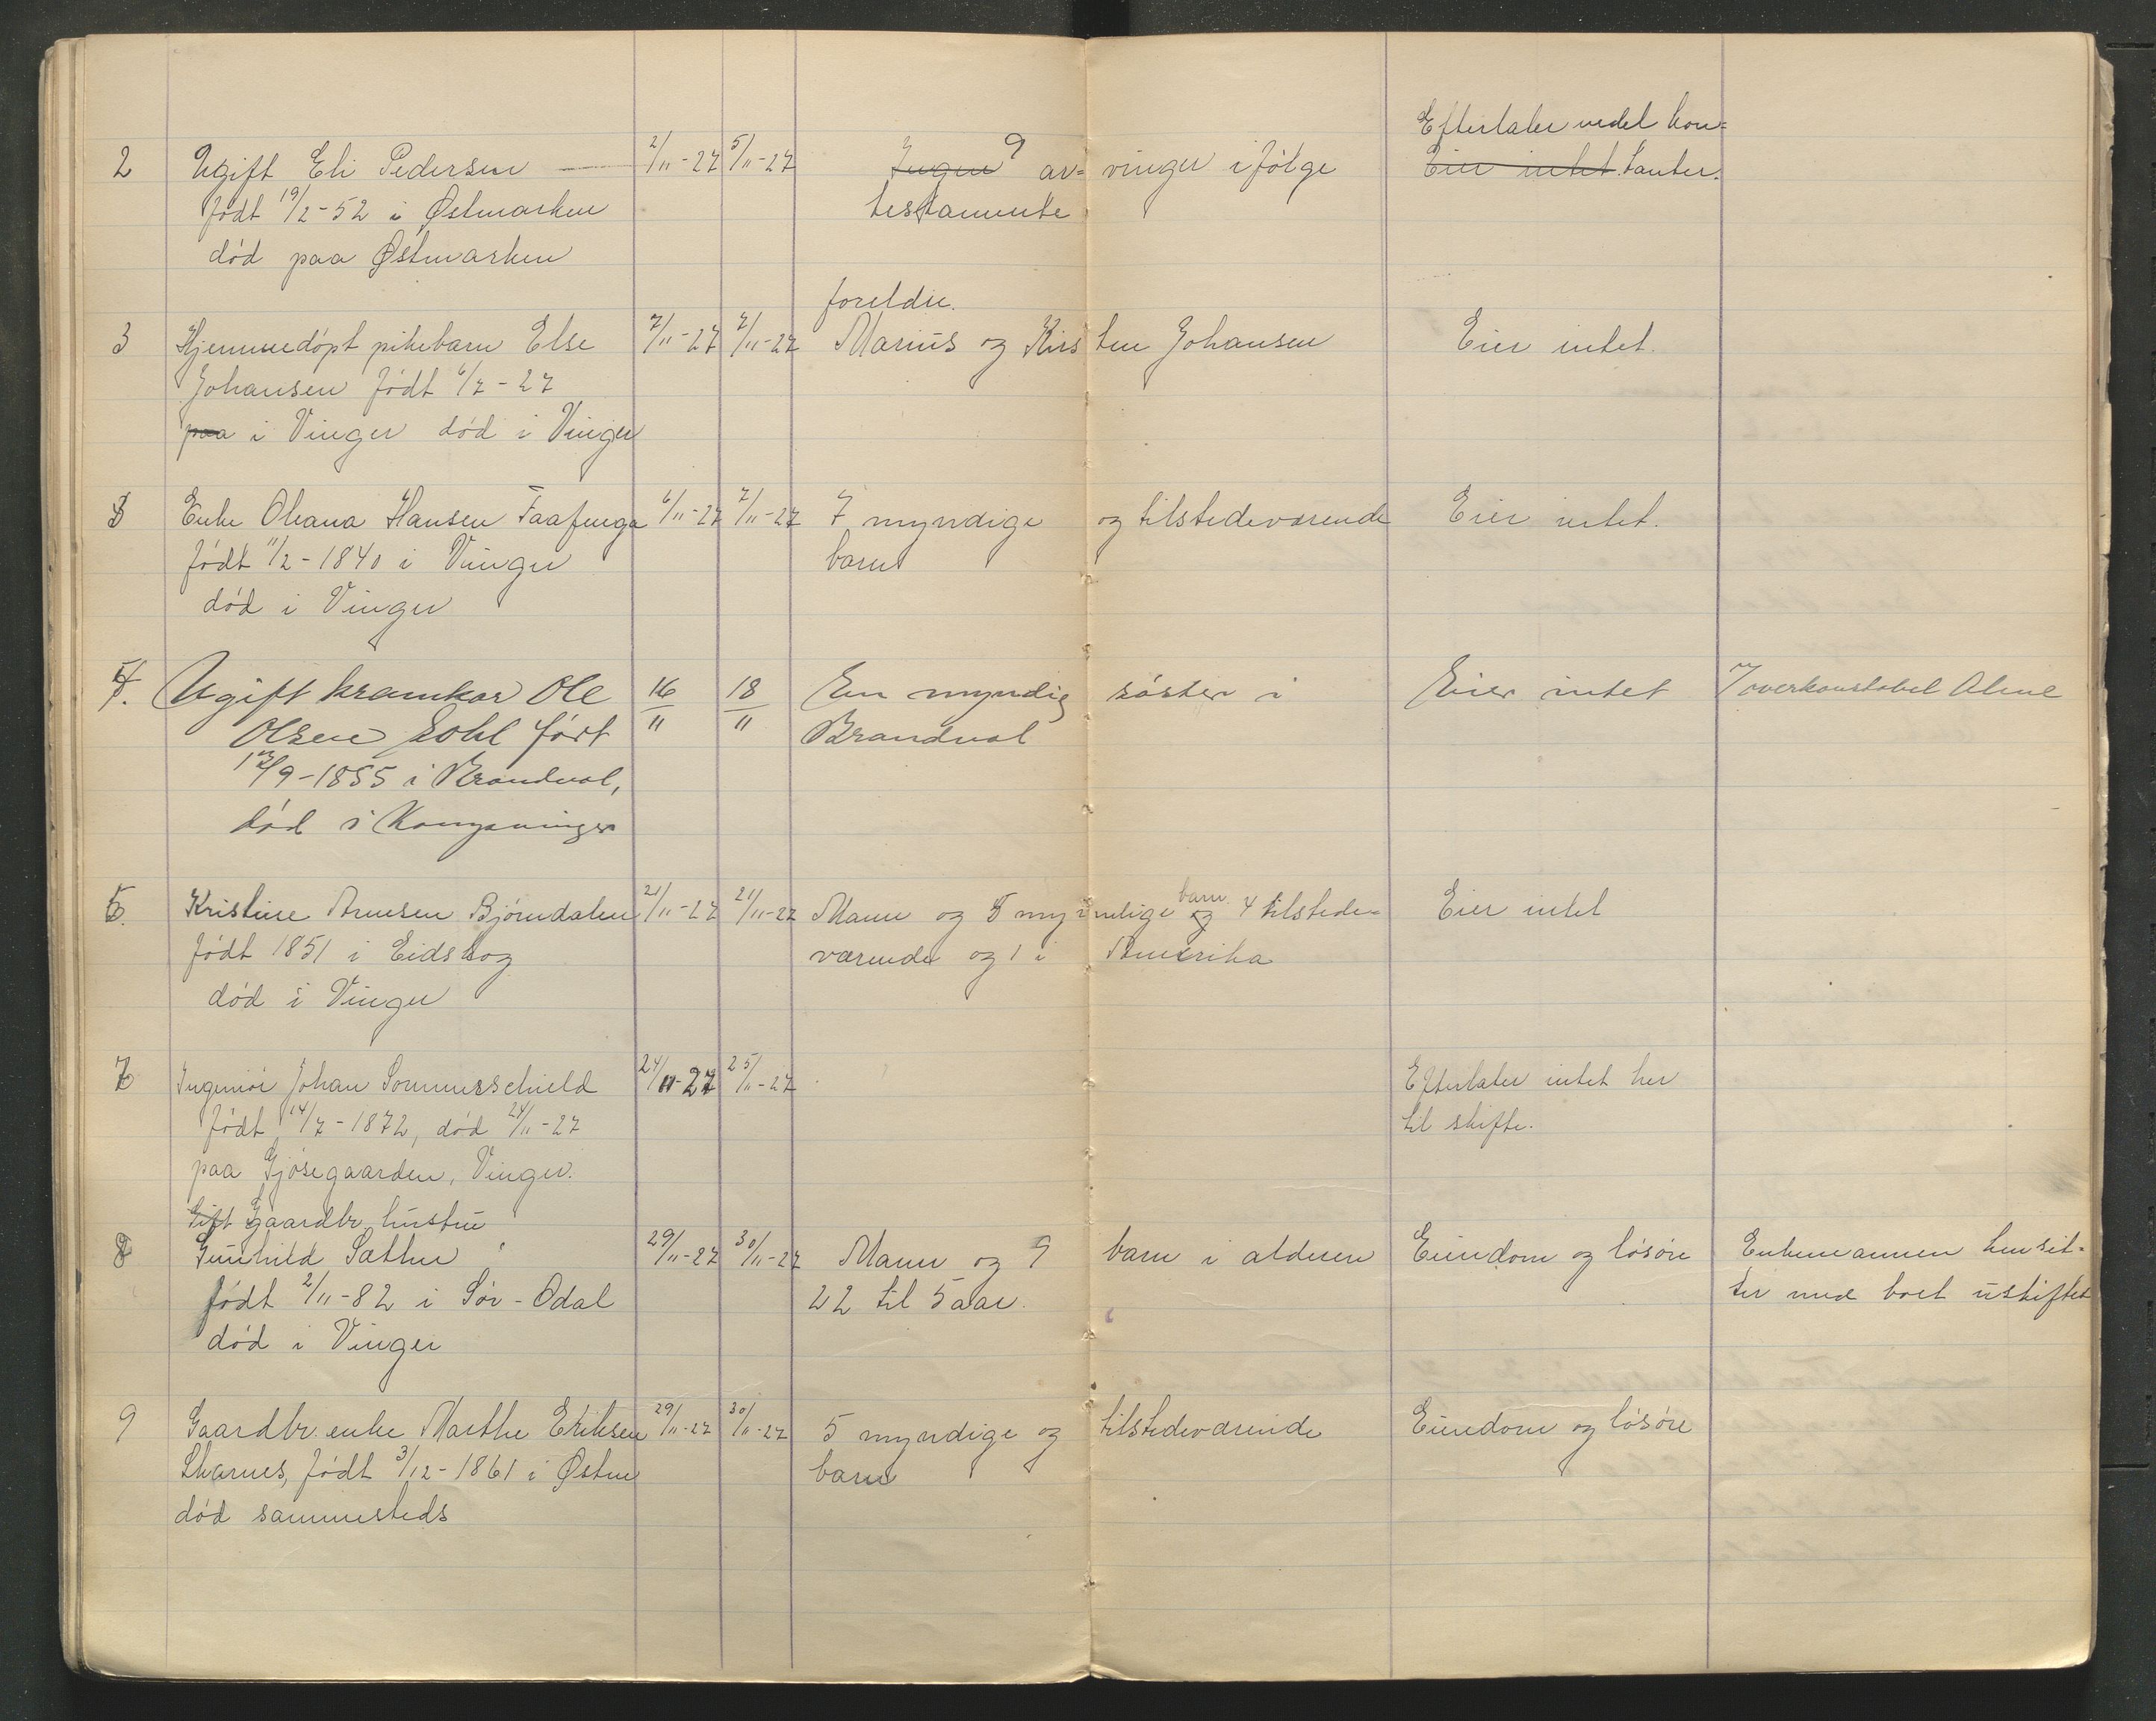 Efterlater medel kon=
2 Ugift Eli Pedersen — 2/11-27 5/11-27 Ingen 9 ar= vinger ifølge Eier intet tanter.
født 19/2-52 i Østmarken testamente
død paa Østmarken
foreldre.
3 Hjemmedøpt pikebarn Else 7/11-27 7/11-27 Marius og Kirsten Johansen Eier intet.
Johansen født 6/7-27
paa i Vinger død i Vinger
Enke Oleana Hansen Faafenga 6/11-27 7/11-27 7 myndige og tilstedeværende Eier intet.
født 11/2-1840 i Vinger barn
død i Vinger
Ugift kramkar Ole 16/11 18/11 En myndig søster i Eier intet overkonstabel
Olsen født Brandval
/9-1855 i Brandval,
død i Kongsvinger
Kristine Arnesen Bjørndalen 21/11-27 21/11-27 Mann og 5 myndige barn og 4 tilstede= Eier intet
født 1851 i Eidskog værende og 1 i Amerika
død i Vinger
7 Ingeniør Johan Sommerschield 24/11-27 25/11-27 Efterlater intet her
født 14/7-1872, død 24/11-27 til skifte.
paa Gjøsegaarden, Vinger.
Gift Gaardbr. hustru
8 Gunhild Sæther 29/11-27 30/11-27 Mann og 9 barn i alderen Eiendom og løsøre Enkemannen hensit=
født 2/11-82 i Sør-Odal 22 til 5 aar. ter med boet uskiftet
død i Vinger
9 Gaardbr. enke Marthe Eriksen 29/11-27 30/11-27 5 myndige og tilstedeværende Eiendom og løsøre
Skarnes, født 3/12-1861 i Østm barn
død sammesteds